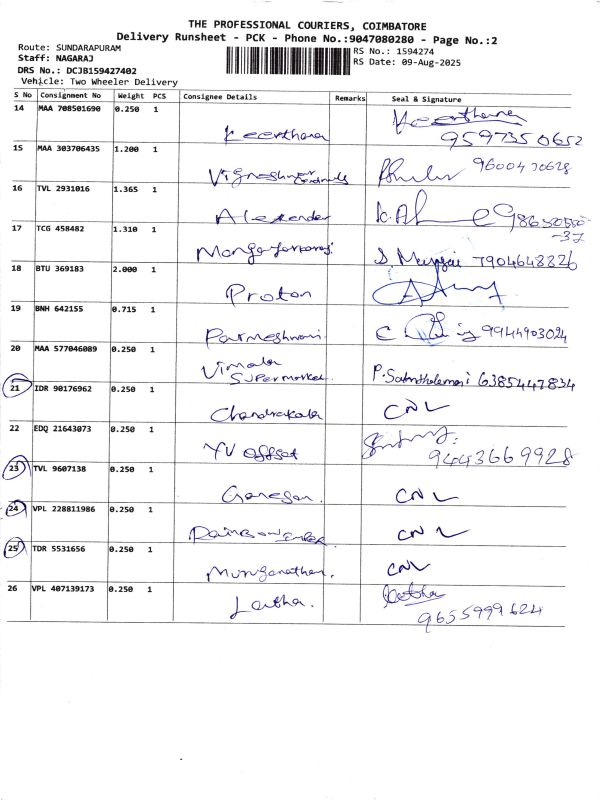 THE PROFESSIONAL COURIERS, COIMBATORE
Delivery Runsheet - PCK - Phone No.:9047080280 - Page No.:2
Route: SUNDARAPURAM
RS No.: 1594274
Staff: NAGARAJ
RS Date: 09-Aug-2025
DRS No.: DCJB159427402
Vehicle: Two Wheeler Delivery
S No Consignment No Weight PCS Consignee Details Remarks Seal & Signature
14 MAA 708501690 0.250 1 Keerthana Keerthana
9597350652
15 MAA 303706435 1.200 1 Vigneshwar 9600470628
16 TVL 2931016 1.365 1 Alexander
17 TCG 458482 1.310 1 S. 7904648826
18 BTU 369183 2.000 1 Proton
19 BNH 642155 0.715 1 Parmeshwari 9944903024
20 MAA 577046089 0.250 1 Vimala
Supermarket 6385447834
21 IDR 90176962 0.250 1 Chandrakala CNL
22 EDQ 21643073 0.250 1 YV offset
9444366 9928
23 TVL 9607138 0.250 1 Ganesan. CNL
24 VPL 228811986 0.250 1 CNL
25 TDR 5531656 0.250 1 Muruganathan. CNL
26 VPL 407139173 0.250 1 Latha. Latha
9655999624